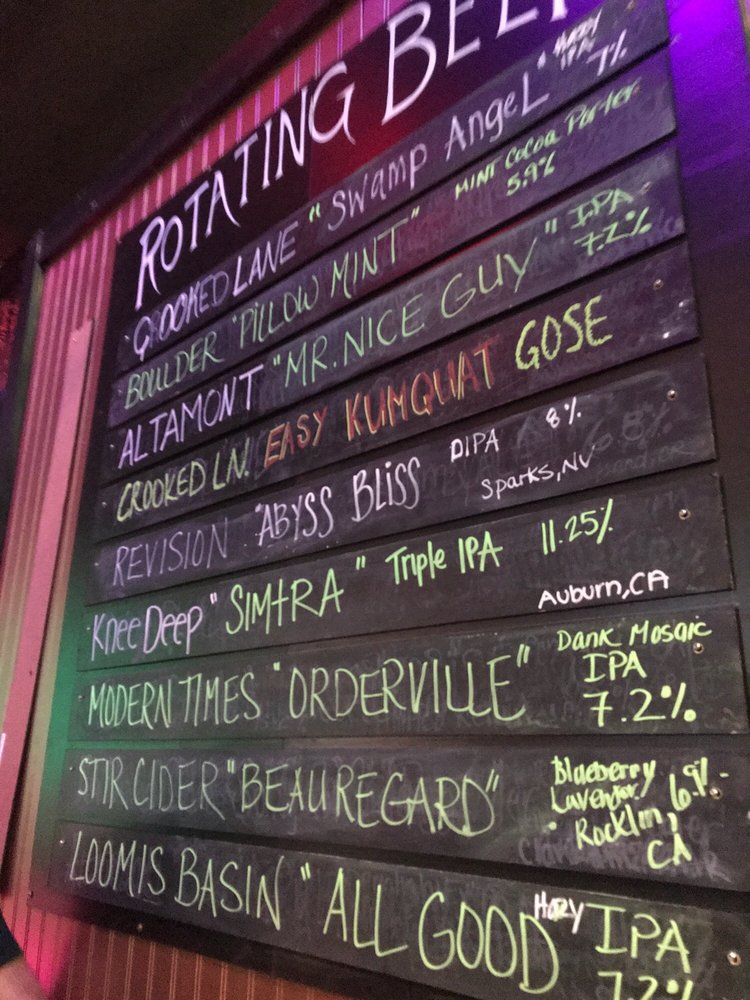 ROTATING BEE
CROOKED LANE "Swamp Angel" HAZY IPA 7%
BOULDER "PILLOW MINT" MINT Cocoa Porter 5.9%
ALTAMONT "MR. NICE GUY" IPA 7.2%
CROOKED LN! EASY KUMQUAT GOSE
REVISION "ABYSS BLISS DIPA 8% Sparks, NV
Knee Deep "SIMTRA" Triple IPA 11.25% Auburn, CA
MODERN TIMES "ORDERVILLE" Dank Mosaic IPA 7.2%
STIR CIDER "BEAUREGARD" Blueberry Lavender 6.9% Rocklin, CA
LOOMIS BASIN "ALL GOOD HAZY IPA 7.2%